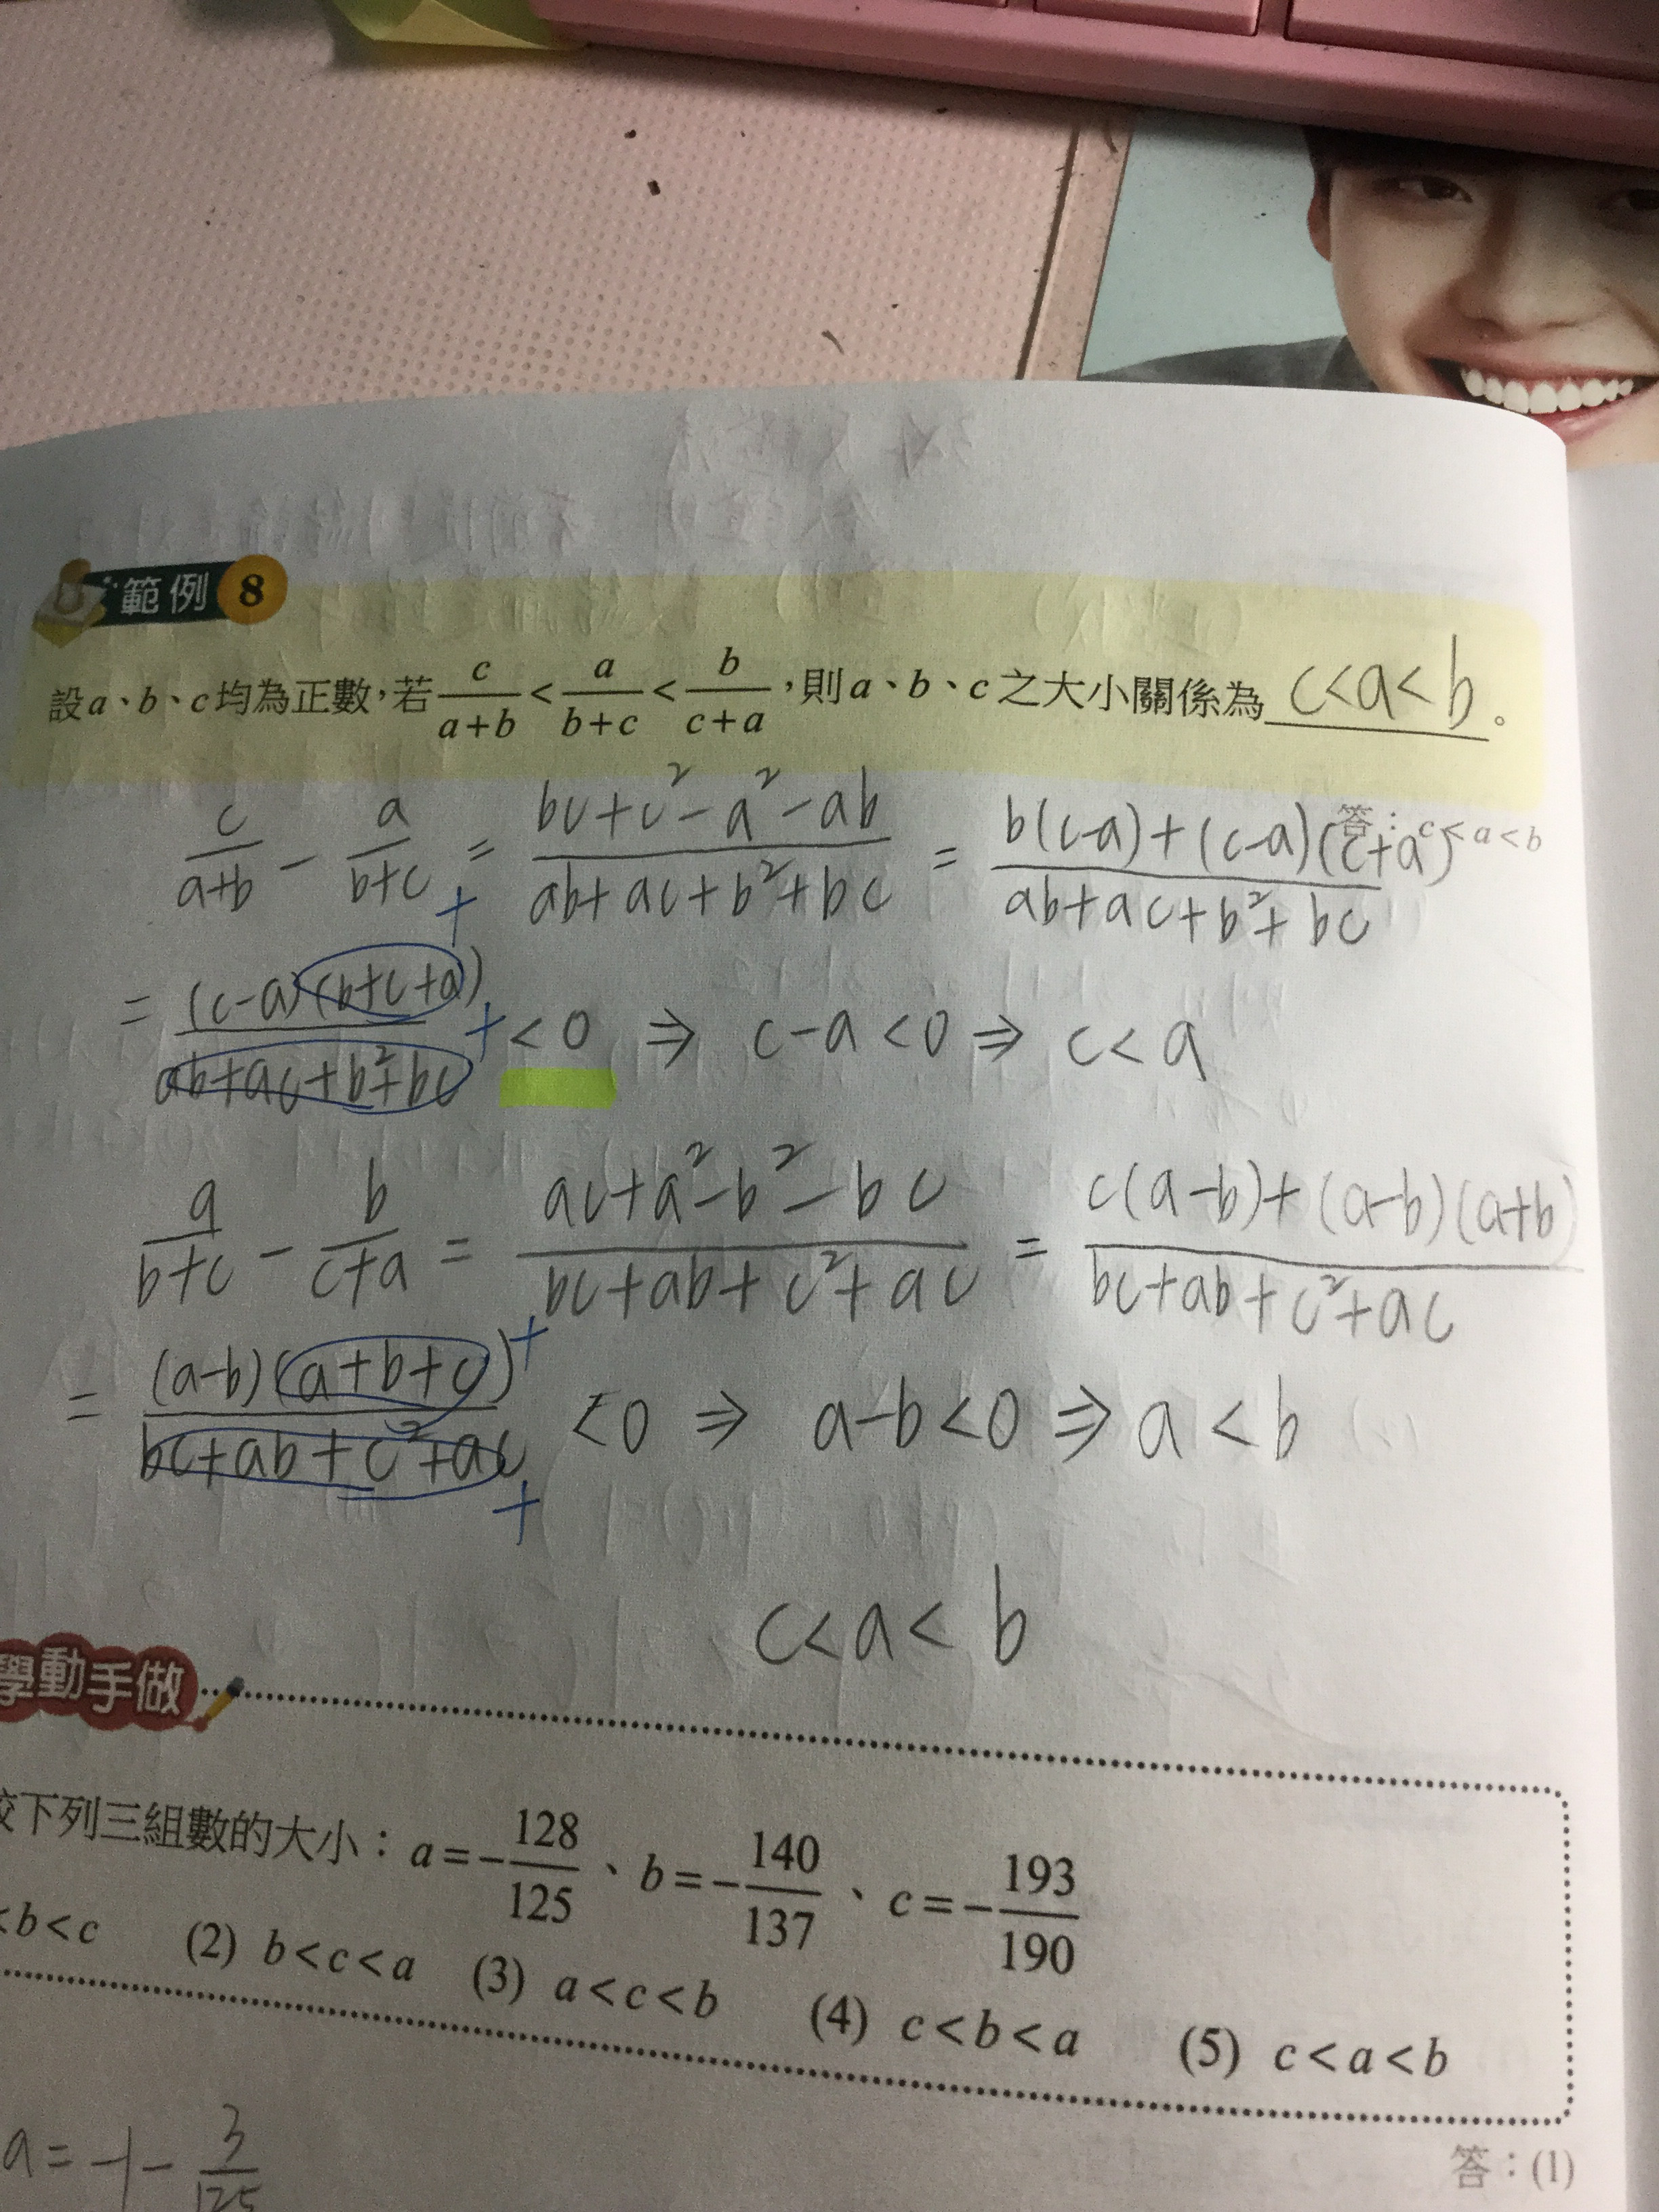 範例 8
設 a、b、c 均為正數,若 c/(a+b) < a/(b+c) < b/(c+a),則 a、b、c 之大小關係為 c<a<b。
答:c<a<b
c/(a+b) - a/(b+c) = (bc+c²-a²-ab)/(ab+ac+b²+bc) = (b(c-a)+(c-a)(c+a))/(ab+ac+b²+bc)
= (c-a)(b+c+a)/(ab+ac+b²+bc) < 0 ⇒ c-a<0 ⇒ c<a
+
+
a/(b+c) - b/(c+a) = (ac+a²-b²-bc)/(bc+ab+c²+ac) = (c(a-b)+(a-b)(a+b))/(bc+ab+c²+ac)
= (a-b)(a+b+c)/(bc+ab+c²+ac) <0 ⇒ a-b<0 ⇒ a<b
+
+
c<a<b
學動手做
下列三組數的大小:a=-128/125、b=-140/137、c=-193/190
<b<c (2) b<c<a (3) a<c<b (4) c<b<a (5) c<a<b
答:(1)
a=-1-3/125